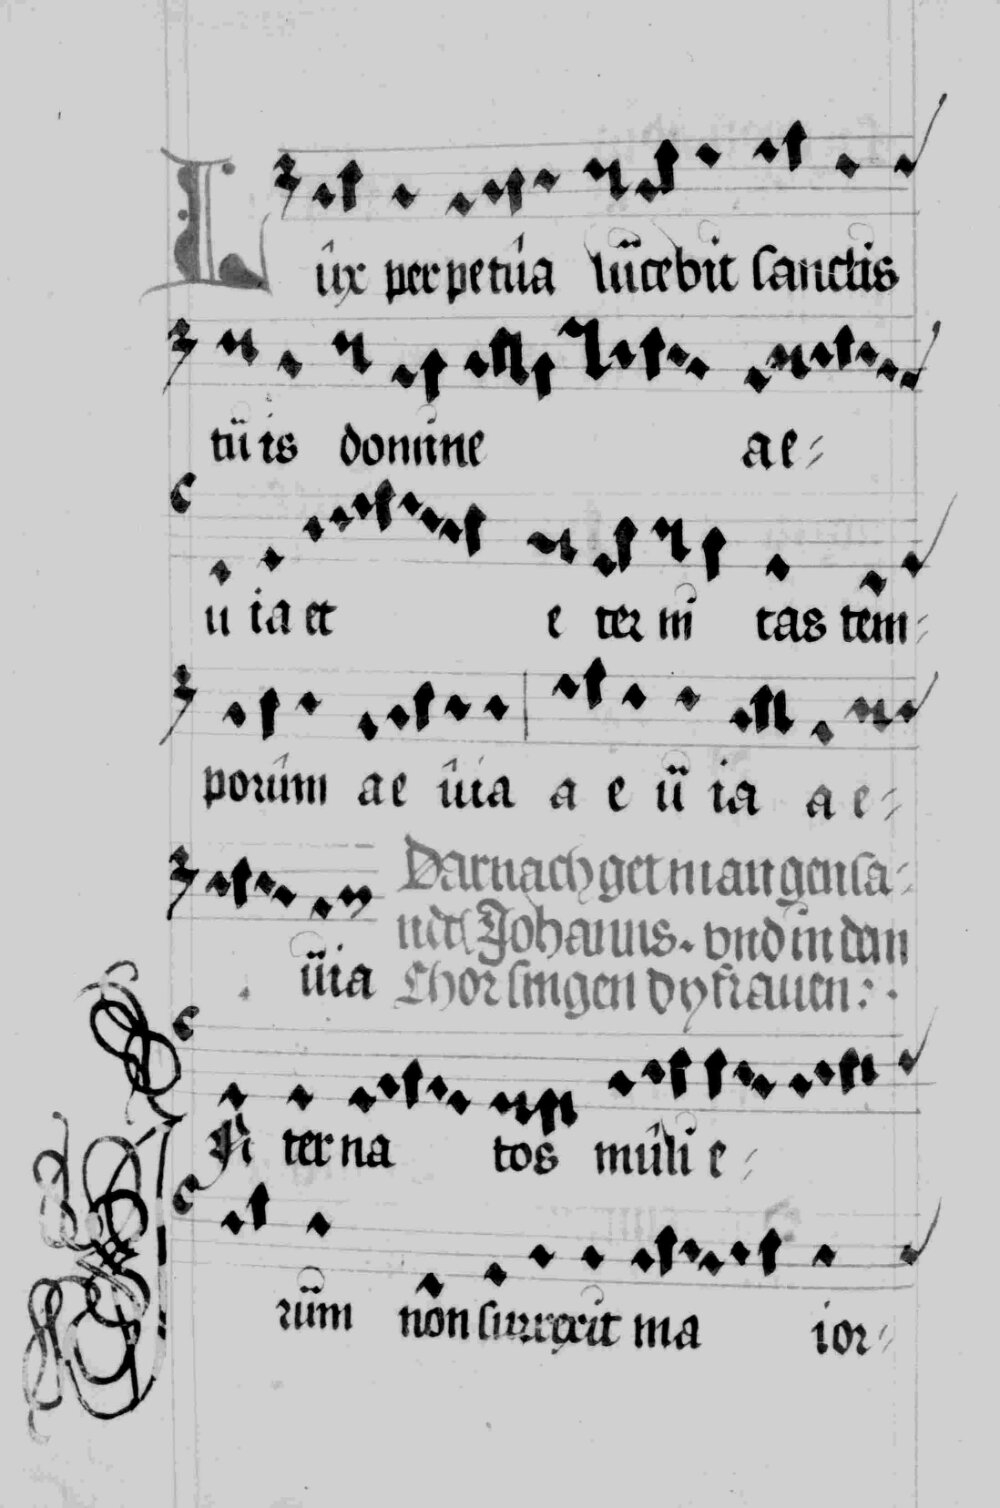 Lux perpetua lucebit sanctis
tuis domine ae-
uia et e ter ni tas tem-
porum ae uia a e u ia a e-
uia Darnach get man gen sa-
ndt Johanns. vnd in dem
Chor singen dy frauen:.
IN ter na tos muli e-
rum non surrexit ma ior-